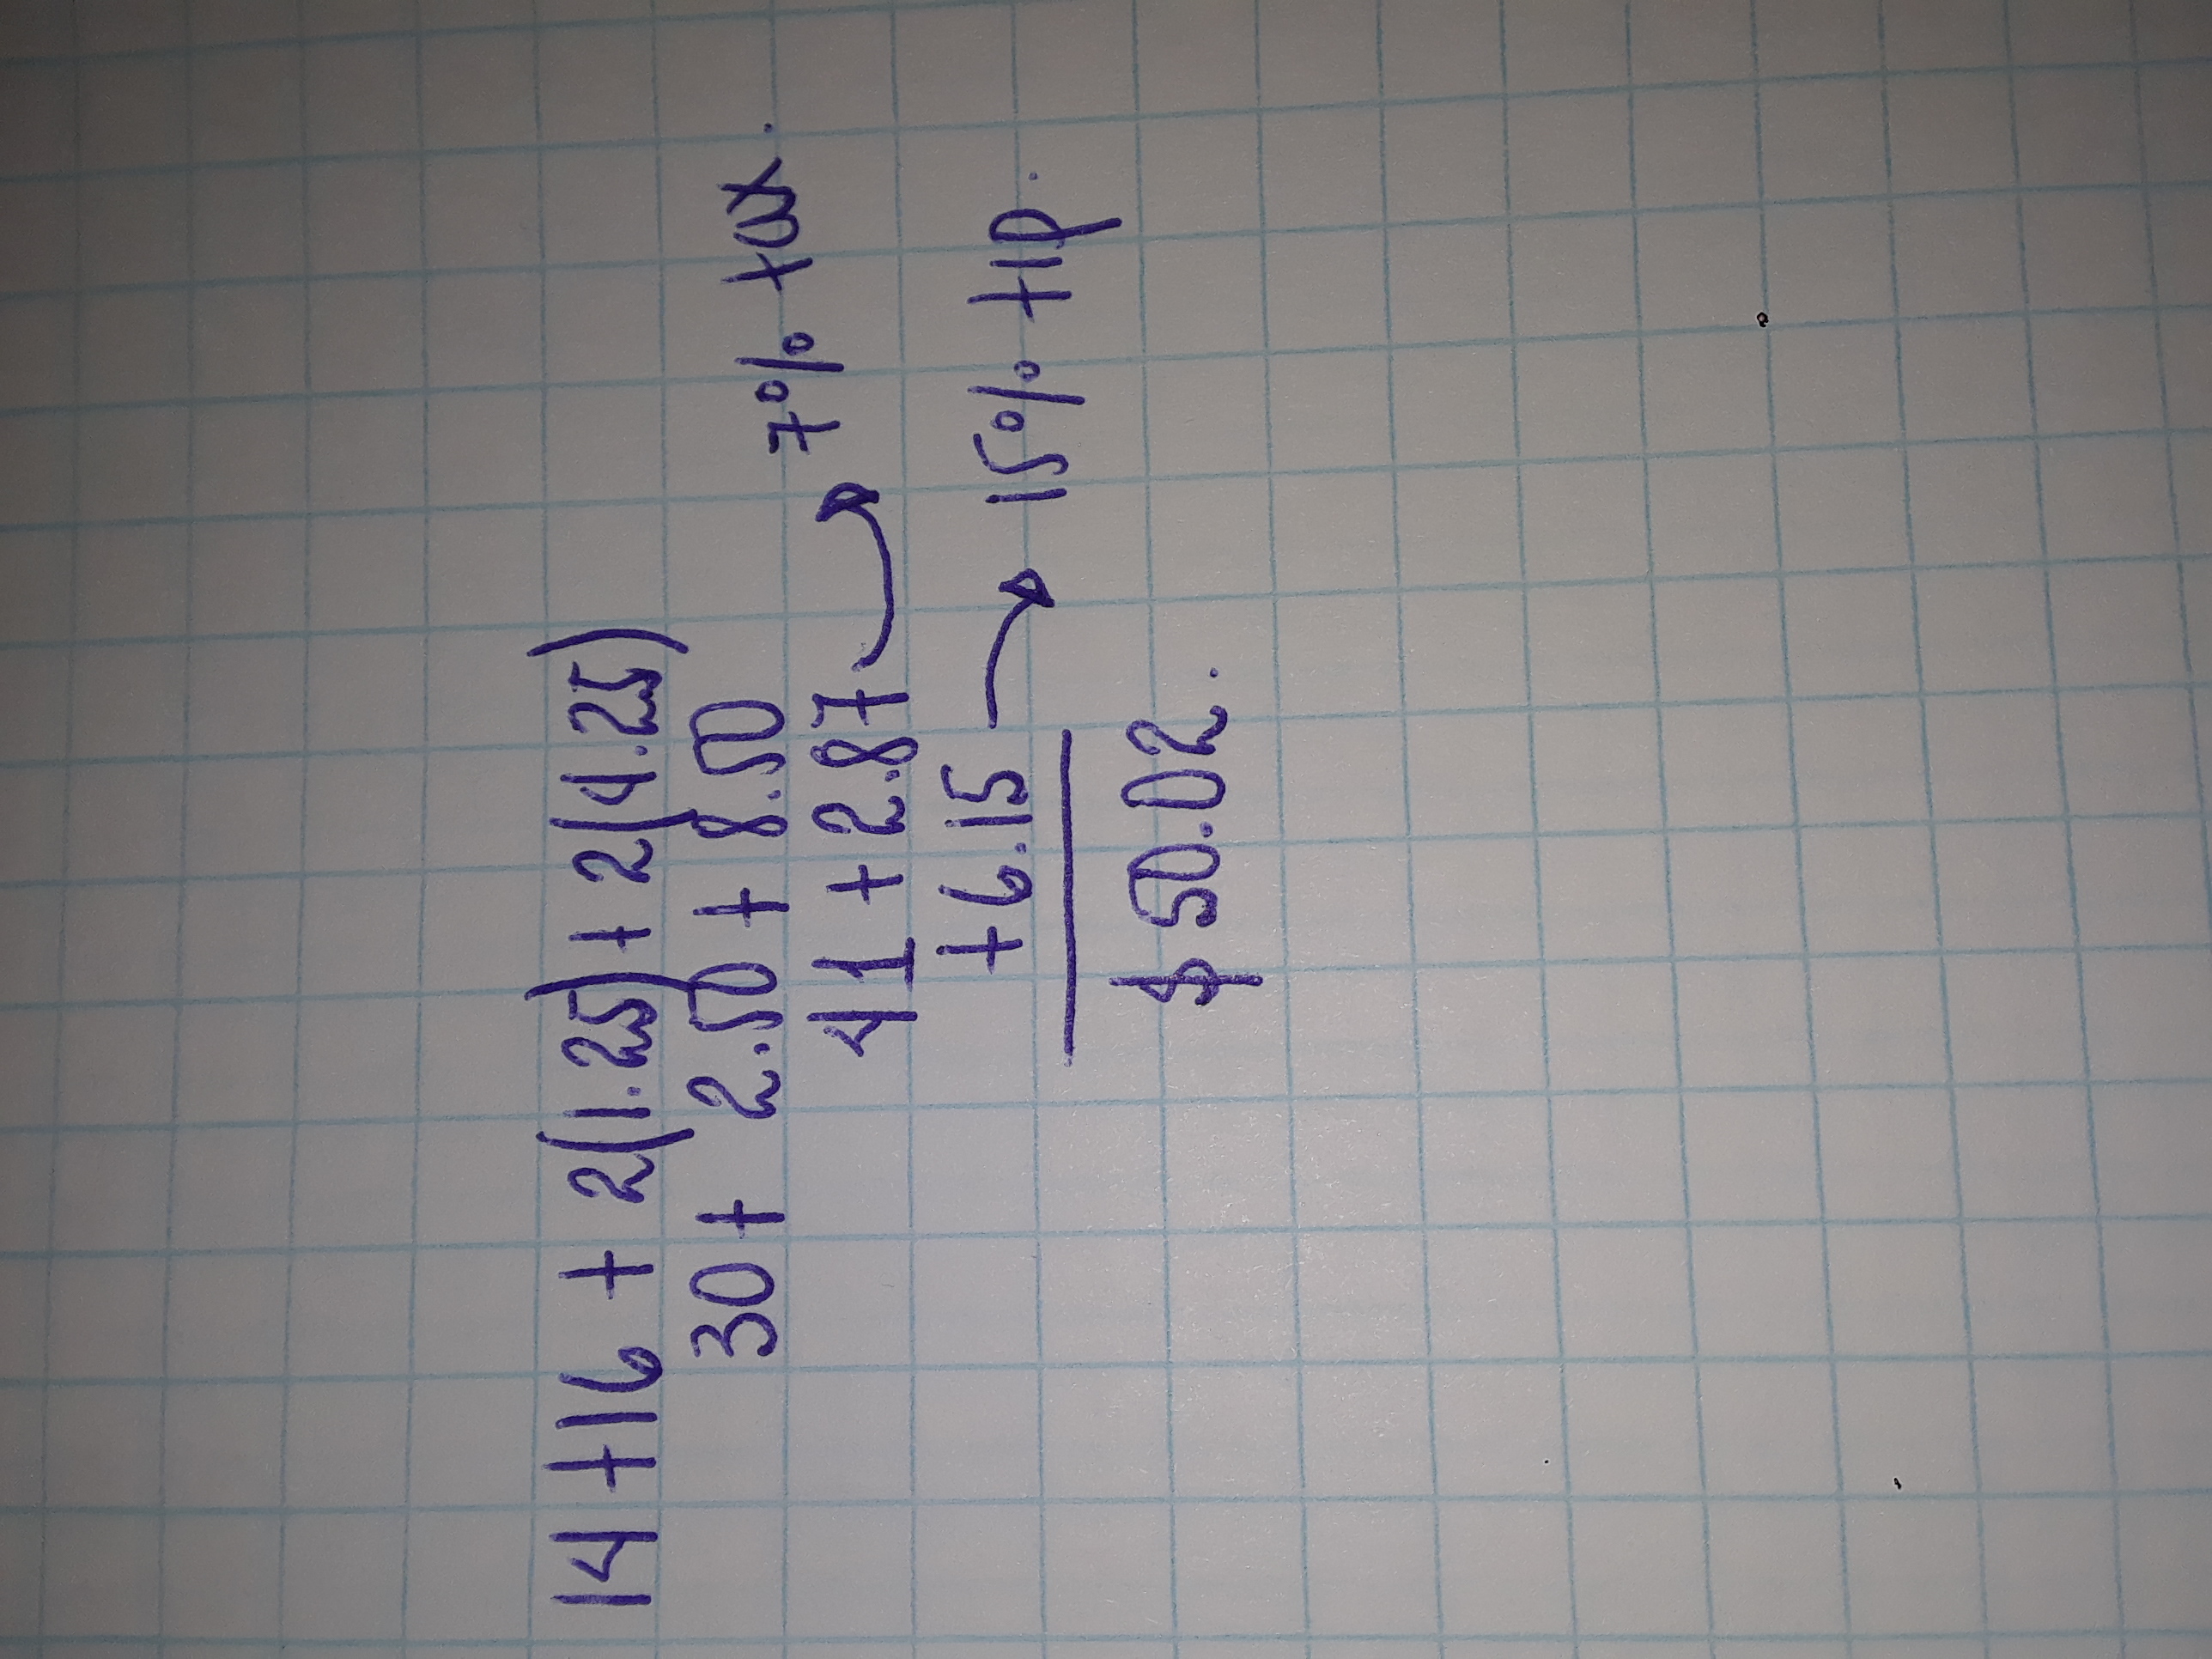 14 + 16 + 2(1.25) + 2(4.25)
30 + 2.50 + 8.50
41 + 2.87 → 7% tax.
+ 6.15 → 15% tip.
$ 50.02.